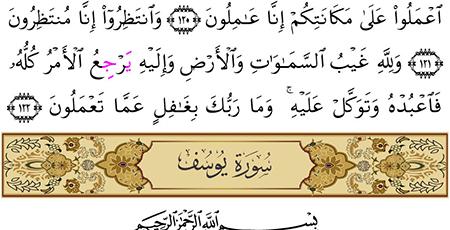 ٱعۡمَلُوا۟ عَلَىٰ مَكَانَتِكُمۡ إِنَّا عَـٰمِلُونَ ١٢٠ وَٱنتَظِرُوٓا۟ إِنَّا مُنتَظِرُونَ
١٢١ وَلِلَّهِ غَيۡبُ ٱلسَّمَـٰوَٰتِ وَٱلۡأَرۡضِ وَإِلَيۡهِ يَرۡجِعُ ٱلۡأَمۡرُ كُلُّهُۥ
فَٱعۡبُدۡهُ وَتَوَكَّلۡ عَلَيۡهِۚ وَمَا رَبُّكَ بِغَـٰفِلٍ عَمَّا تَعۡمَلُونَ ١٢٢
سُورَةُ يُوسُفَ
بِسۡمِ ٱللَّهِ ٱلرَّحۡمَـٰنِ ٱلرَّحِيمِ